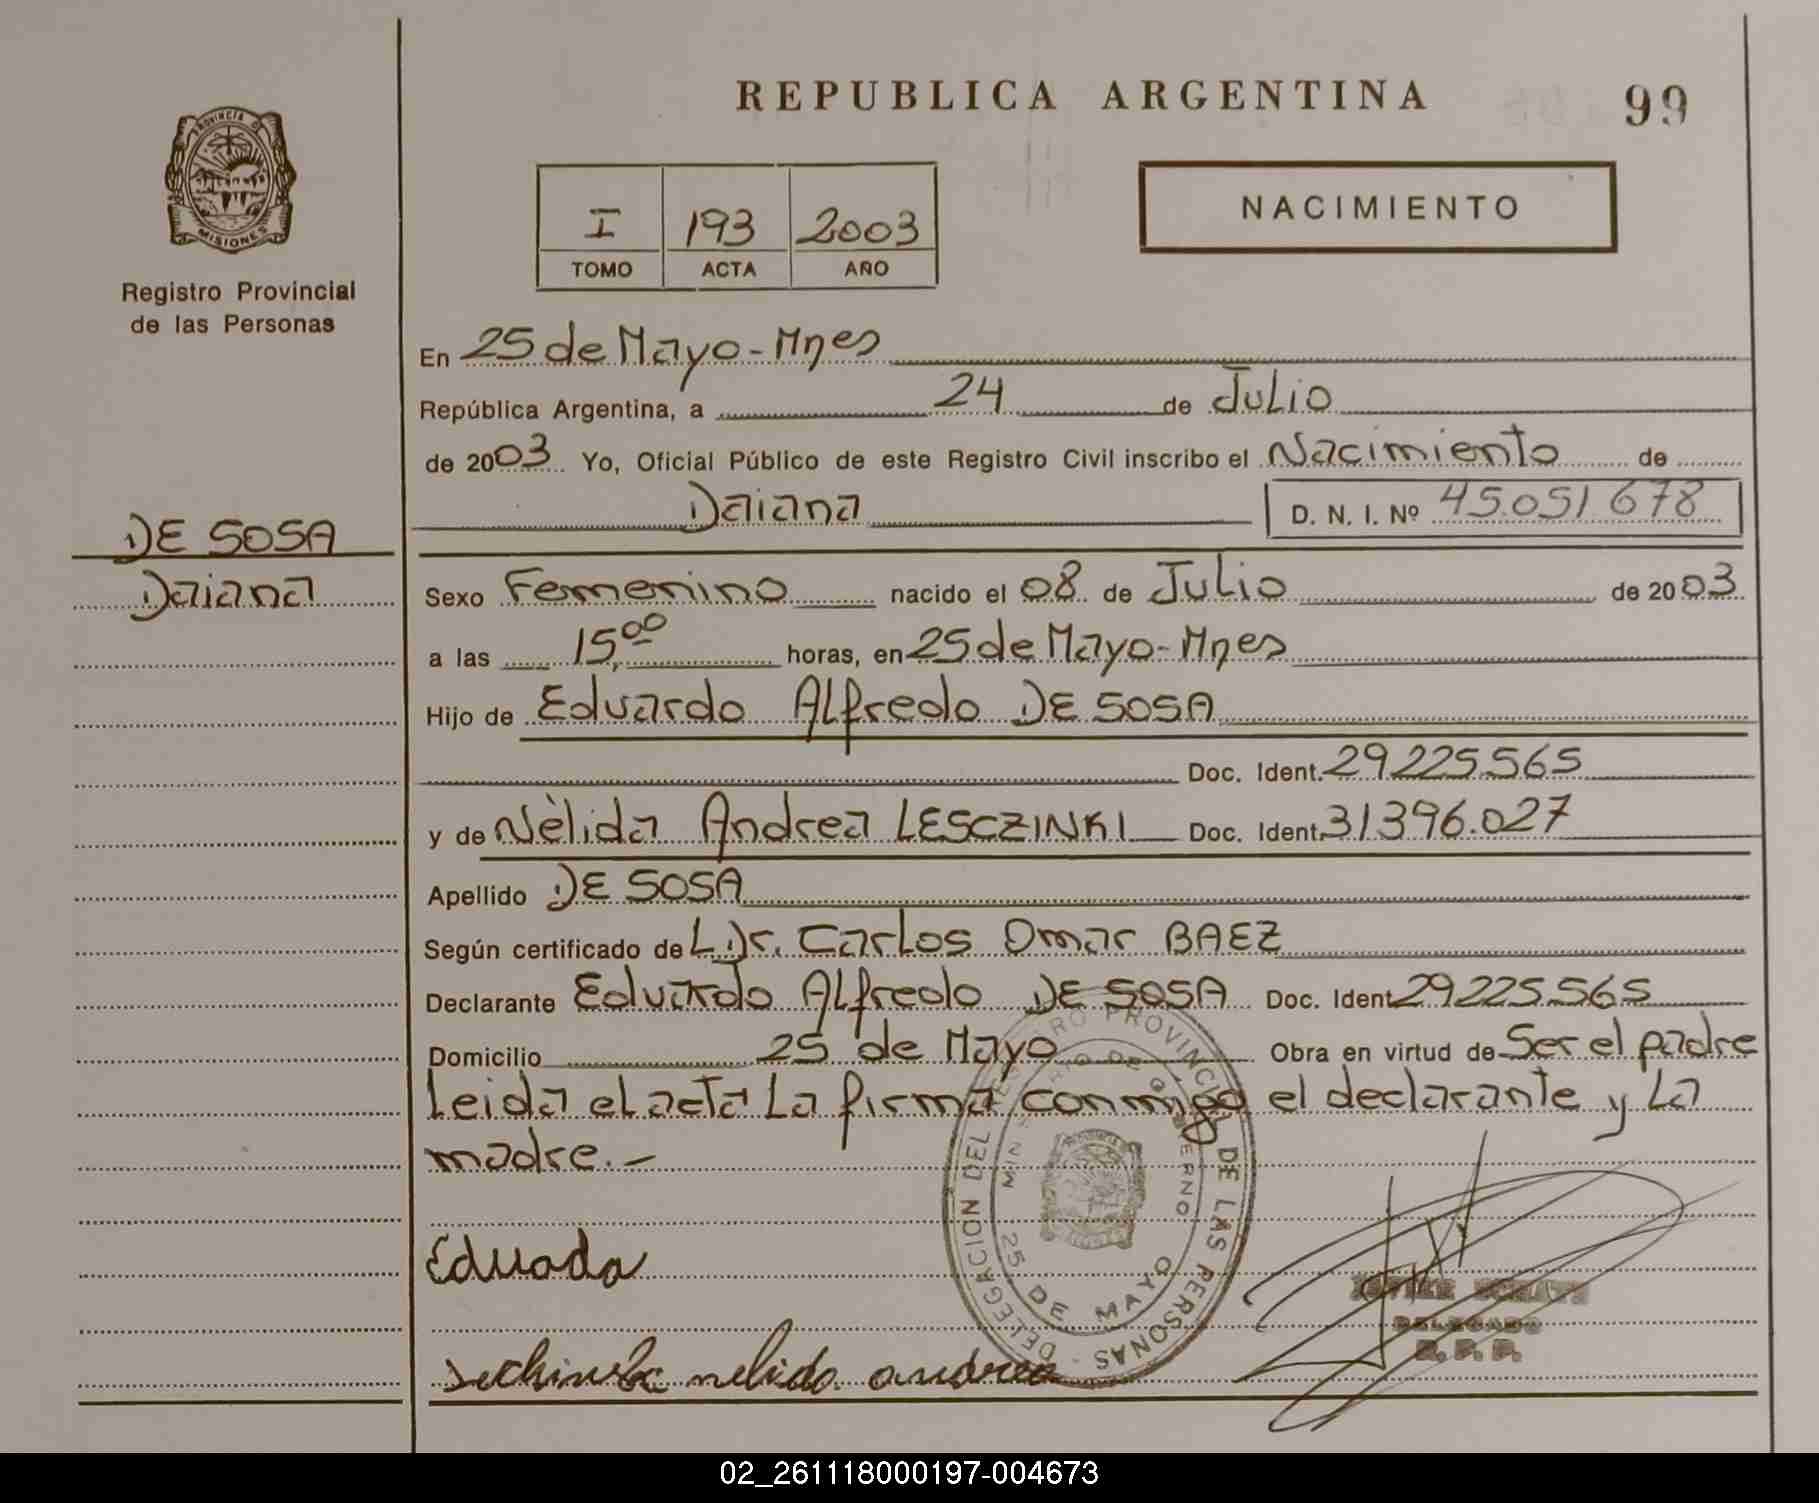 REPUBLICA ARGENTINA
99
PROVINCIA D
MISIONES
Registro Provincial
de las Personas
NACIMIENTO
I 193 2003
TOMO ACTA AÑO
En 25 de Mayo-Mnes
República Argentina, a 24 de Julio
de 2003 Yo, Oficial Público de este Registro Civil inscribo el Nacimiento de
Daiana D. N. I. Nº 45.051 678
DE SOSA
Daiana
Sexo Femenino nacido el 08 de Julio de 2003
a las 15,00 horas, en 25 de Mayo-Mnes
Hijo de Eduardo Alfredo DE SOSA
Doc. Ident. 29.225.565
y de Nèlida Andrea LESCZINKI Doc. Ident. 31.396.027
Apellido DE SOSA
Según certificado de L Dr. Carlos Omar BAEZ
Declarante Eduardo Alfredo DE SOSA Doc. Ident 29.225.565
Domicilio 25 de Mayo Obra en virtud de Ser el padre
Leida el acta La firma conmigo el declarante y La
madre.-
DELEGACION DEL REGISTRO PROVINCIAL DE LAS PERSONAS -
MINISTERIO DE GOBIERNO
25 DE MAYO
Eduado
nelida andrea
DELEGADO
R. P. P.
02_261118000197-004673